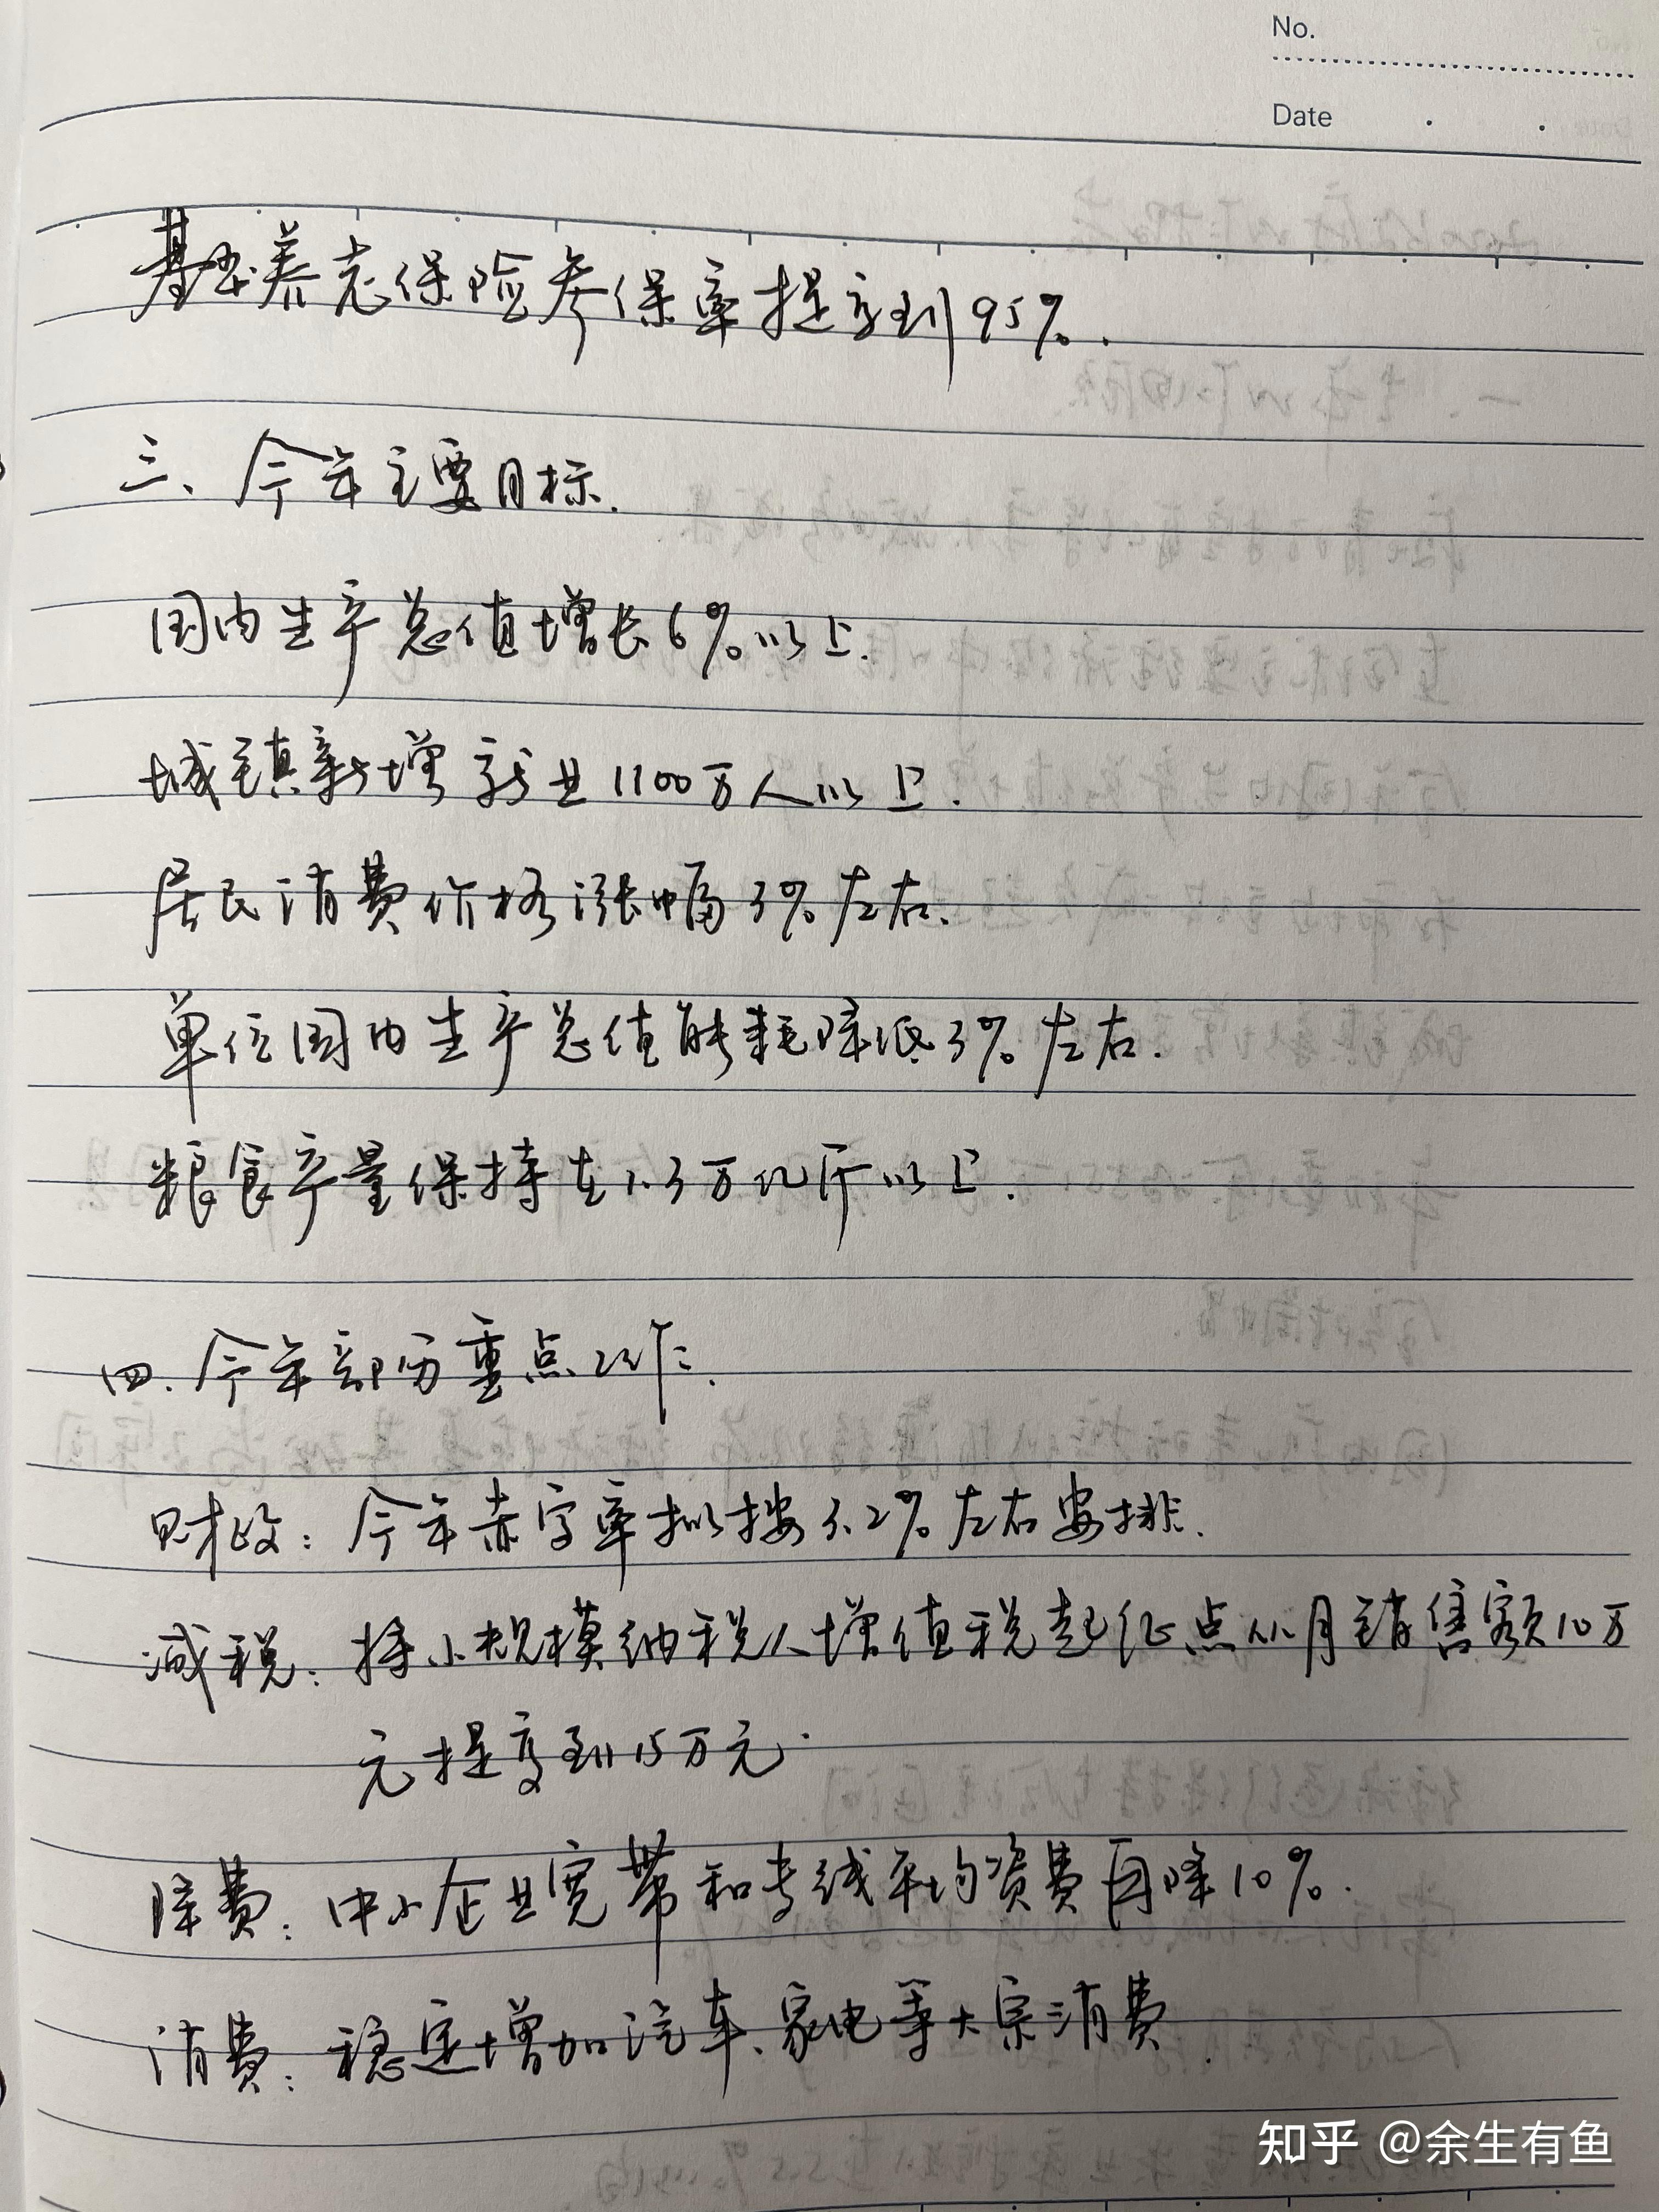 No.
Date
基本养老保险参保率提高到95%.
三、今年主要目标.
国内生产总值增长6%以上.
城镇新增就业1100万人以上.
居民消费价格涨幅3%左右.
单位国内生产总值能耗降低3%左右.
粮食产量保持在1.3万亿斤以上.
四.今年部分重点工作.
财政:今年赤字率拟按3.2%左右安排.
减税:将小规模纳税人增值税起征点从月销售额10万
元提高到15万元.
降费:中小企业宽带和专线平均资费再降10%.
消费:稳定增加汽车、家电等大宗消费.
知乎 @余生有鱼